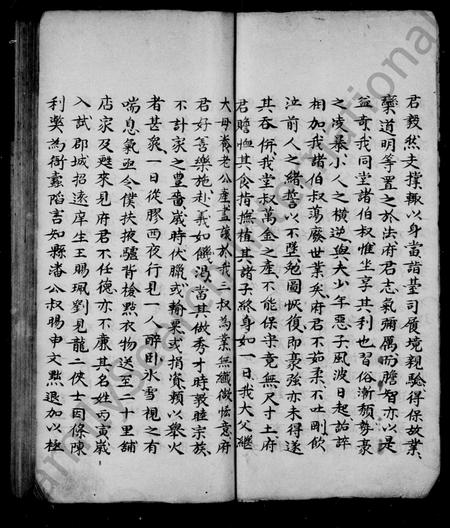 君毅然支撐輙以身當諸墓司質境親驗得保故業
欒道明等置之於法府君志氣彌厲而膽智亦以是
益奇我同堂諸伯叔惟坐享其利也習俗漸頹勢豪
之凌暴小人之橫逆與大少年惡子風波日起詬誶
相加我諸伯叔蕩廢世業矣府君不茹柔不吐剛飲
泣前人之緒誓以不墜勉圖恢復即豪強亦未得遂
其吞併我堂叔萬金之產不能保守竟無尺寸土府
君贍恤其食指撫植其諸子終身如一日我大父繼
大母養老公產盡讓於我二叔為業無纖微怯意府
君好善樂施赴義如饑渴當其做秀才時敦睦宗族
不計家之豐嗇歲時伏臘或輸粟或捐資賴以舉火
者甚衆一日從膠西夜行見一人醉臥氷雪視之有
喘息氣亟令僕扶掖驢背撿點衣物送至二十里舖
店家及甦來見府君不任德亦不廉其名姓丙寅歲
入試郡城招遠庠生王賜珮劉見龍二俠士因條陳
利獘為衙蠹陷害知縣潘公叔賜申文黙退加以桎